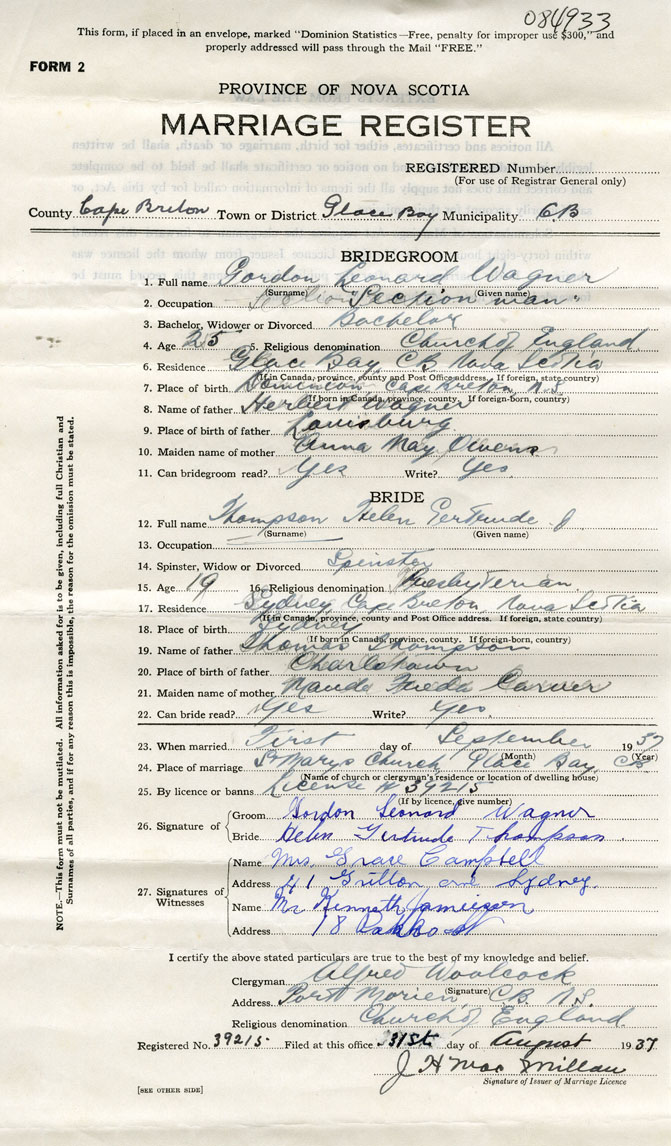 084933
This form, if placed in an envelope, marked "Dominion Statistics—Free, penalty for improper use $300," and
properly addressed will pass through the Mail "FREE."
FORM 2
PROVINCE OF NOVA SCOTIA
MARRIAGE REGISTER
REGISTERED Number
(For use of Registrar General only)
County Cape Breton Town or District Glace Bay Municipality C.B
BRIDEGROOM
1. Full name Gordon Leonard Wagner
(Surname) (Given name)
2. Occupation Section man
3. Bachelor, Widower or Divorced Bachelor
4. Age 25 5. Religious denomination Church of England
6. Residence Glace Bay, CB Nova Scotia
(If in Canada, province, county and Post Office address. If foreign, state country)
7. Place of birth Dominion Cape Breton N.S.
(If born in Canada, province, county. If foreign-born, country)
8. Name of father Herbert Wagner
9. Place of birth of father Louisburg
10. Maiden name of mother Anna May Owens
11. Can bridegroom read? Yes Write? Yes.
BRIDE
12. Full name Thompson Helen Gertrude J
(Surname) (Given name)
13. Occupation
14. Spinster, Widow or Divorced Spinster
15. Age 19 16. Religious denomination Presbyterian
17. Residence Sydney Cape Breton, Nova Scotia
(If in Canada, province, county and Post Office address. If foreign, state country)
18. Place of birth Sydney
(If born in Canada, province, county. If foreign-born, country)
19. Name of father Thomas Thompson
20. Place of birth of father Charlottown
21. Maiden name of mother Maude Carver
22. Can bride read? Yes Write? Yes.
23. When married First day of September 1937
(Month) (Year)
24. Place of marriage St Marys Church Glace Bay, CB
(Name of church or clergyman's residence or location of dwelling house)
25. By licence or banns License # 39215
(If by licence, give number)
26. Signature of Groom Gordon Leonard Wagner
Bride Helen Gertrude Thompson
27. Signatures of Witnesses Name Mrs. Grace Campbell
Address 41 Sydney.
Name Mr Kenneth
Address 78 St
I certify the above stated particulars are true to the best of my knowledge and belief.
Clergyman Alfred Woolcock
(Signature)
Address Port Morien, CB. N.S.
Religious denomination Church of England
Registered No. 39215 Filed at this office 31st day of August 1937
J H Mac Millan
Signature of Issuer of Marriage Licence
[SEE OTHER SIDE]
NOTE.—This form must not be mutilated. All information asked for is to be given, including full Christian and
Surnames of all parties, and if for any reason this is impossible, the reason for the omission must be stated.